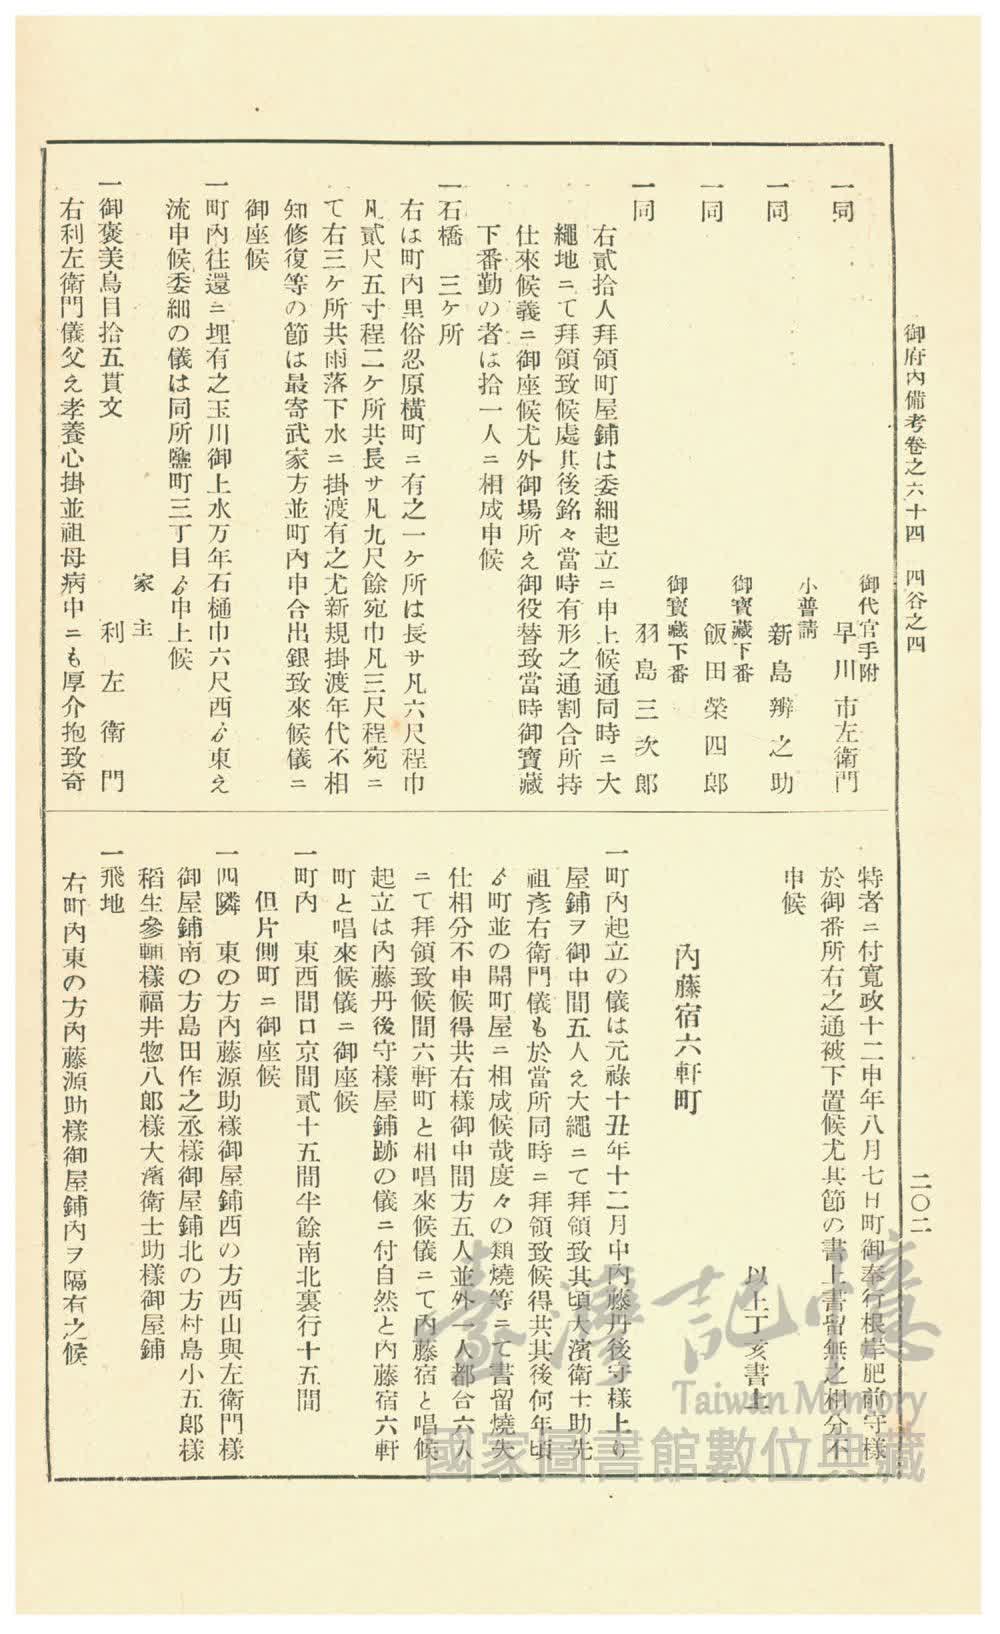 御府內備考卷之六十四　四谷之四
二〇二
一同
御代官手附
早川市左衛門
一同
小普請
新島辨之助
一同
御寶藏下番
飯田榮四郎
一同
御寶藏下番
羽島三次郎
右貳拾人拜領町屋鋪は委細起立ニ申上候通同時ニ大
繩地ニて拜領致候處其後銘々當時有形之通割合所持
仕來候義ニ御座候尤外御場所え御役替致當時御寶藏
下番勤の者は拾一人ニ相成申候
一石橋　三ケ所
右は町內里俗忍原橫町ニ有之一ケ所は長サ凡六尺程巾
凡貳尺五寸程二ケ所共長サ凡九尺餘宛巾凡三尺程宛ニ
て右三ケ所共雨落下水ニ掛渡有之尤新規掛渡年代不相
知修復等の節は最寄武家方並町內申合出銀致來候儀ニ
御座候
一町內往還ニ埋有之玉川御上水万年石樋巾六尺西ゟ東え
流申候委細の儀は同所鹽町三丁目ゟ申上候
家主
一御褒美鳥目拾五貫文　利左衛門
右利左衛門儀父え孝養心掛並祖母病中ニも厚介抱致奇
特者ニ付寛政十二申年八月七日町御奉行根岸肥前守樣
於御番所右之通被下置候尤其節の書上書留無之相分不
申候
以上丁亥書上
內藤宿六軒町
一町內起立の儀は元祿十丑年十二月中內藤丹後守樣上り
屋鋪ヲ御中間五人え大繩ニて拜領致其頃大濱衛士助先
祖彥右衛門儀も於當所同時ニ拜領致候得共其後何年頃
ゟ町並の開町屋ニ相成候哉度々の類燒等ニて書留燒失
仕相分不申候得共右樣御中間方五人並外一人都合六人
ニて拜領致候間六軒町と相唱來候儀ニて內藤宿と唱候
起立は內藤丹後守樣屋鋪跡の儀ニ付自然と內藤宿六軒
町と唱來候儀ニ御座候
一町內　東西間口京間貳十五間半餘南北裏行十五間
但片側町ニ御座候
一四隣　東の方內藤源助樣御屋鋪西の方西山與左衛門樣
御屋鋪南の方島田作之丞樣御屋鋪北の方村島小五郎樣
稻生參輔樣福井惣八郎樣大濱衛士助樣御屋鋪
一飛地
右町內東の方內藤源助樣御屋鋪內ヲ隔有之候
臺灣記憶
Taiwan Memory
國家圖書館數位典藏